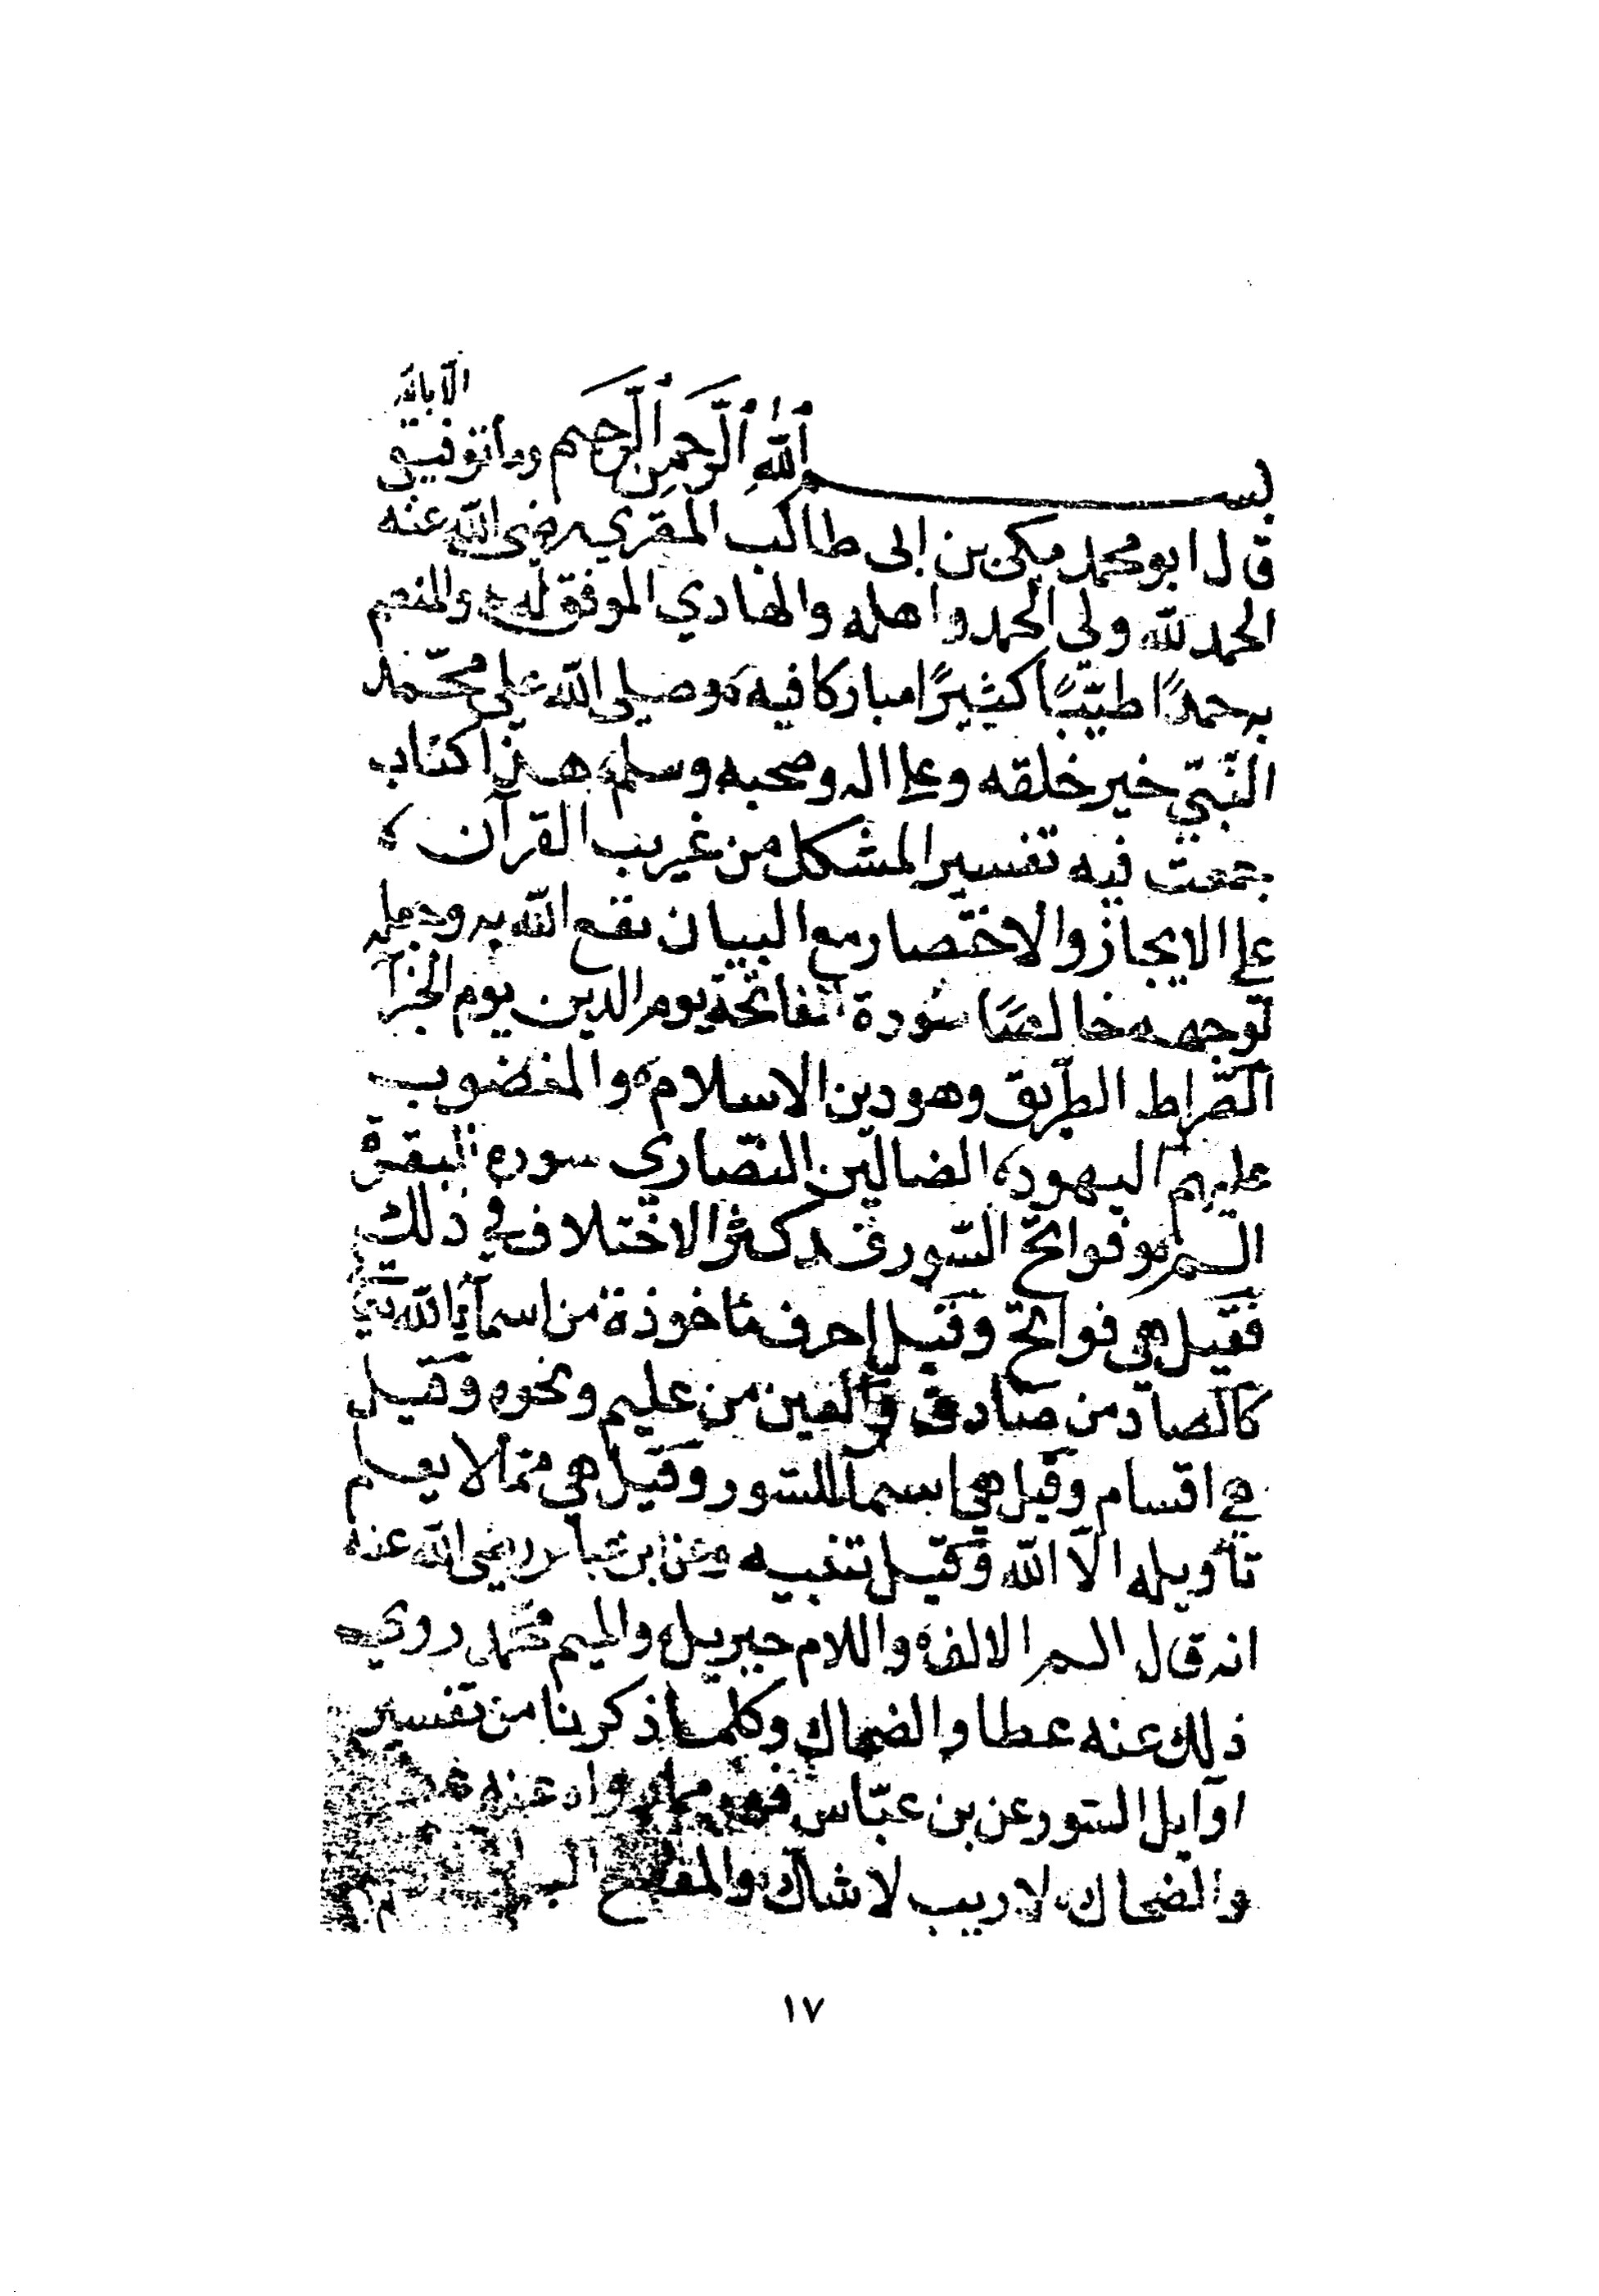 بسم الله الرحمن الرحيم وما توفيقي الا بالله
قال ابو محمد مكي بن ابى طالب المقري رضي الله عنه
الحمد لله ولي الحمد واهله والهادي الموفق له والمنعم
به حمدًا طيّبًا كثيرًا مباركا فيه وصلى الله على محمّد
النّبيّ خير خلقه وعلى اله وصحبه وسلم هذا كتاب
جمعت فيه تفسير المشكل من غريب القرآن
على الايجاز والاختصار مع البيان نفع الله به وجعله
لوجهه خالصًا سورة الفاتحة يوم الدين يوم الجزآ
الصّراط الطريق وهو دين الاسلام والمغضوب
عليهم اليهود الضالين النصاري سورة البقرة
الم هو فواتح السّور قد كثر الاختلاف في ذلك
فقيل هي فواتح وقيل احرف مأخوذة من اسمآ الله
كالصاد من صادق والعين من عليم ونحوه وقيل
هي اقسام وقيل هي اسمآ للسّور وقيل هي ممّا لا يعلم
تأويله الاّ الله وقيل تنبيه وعن ابن عباس رضي الله عنه
انه قال الم الالف الله واللام جبريل والميم محمّد روي
ذلك عنه عطا والضحاك وكلما ذكرنا من تفسير
اوايل السّور عن بن عبّاس فهو مما رواه عنه
والضحاك لا ريب لا شك والمفلح
١٧